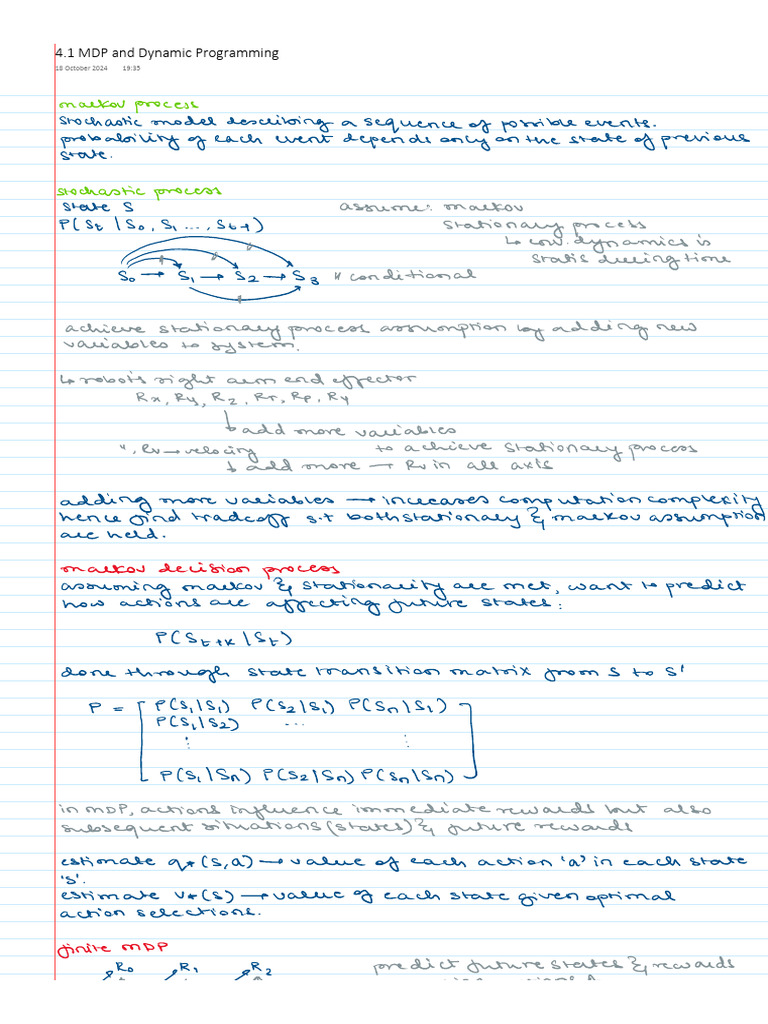 4.1 MDP and Dynamic Programming
18 October 2024 19:35
markov process
stochastic model describing a sequence of possible events.
probability of each event depends only on the state of previous
state.
stochastic process
state S
assume: markov
P(St | S0, S1 ..., St-1)
stationary process
↳ cov. dynamics is
static during time
S0 → S1 → S2 → S3
* conditional
achieve stationary process assumption by adding new
variables to system.
↳ robot's right arm end effector
Rx, Ry, Rz, Rr, Rp, Ry
↓ add more variables
", Rv → velocity to achieve stationary process
↓ add more → Rv in all axis
adding more variables → increases computation complexity
hence find tradeoff s.t both stationary & markov assumption
are held.
markov decision process
assuming markov & stationarity are met, want to predict
how actions are affecting future states:
P(St+k | St)
done through state transition matrix from s to s'
P = [ P(S1|S1) P(S2|S1) P(Sn|S1)
P(S1|S2) ...
⋮ ⋮
P(S1|Sn) P(S2|Sn) P(Sn|Sn) ]
in MDP, actions influence immediate rewards but also
subsequent situations (states) & future rewards
estimate q*(s,a) → value of each action 'a' in each state
's'.
estimate v*(s) → value of each state given optimal
action selections.
finite MDP
R0 R1 R2
predict future states & rewards